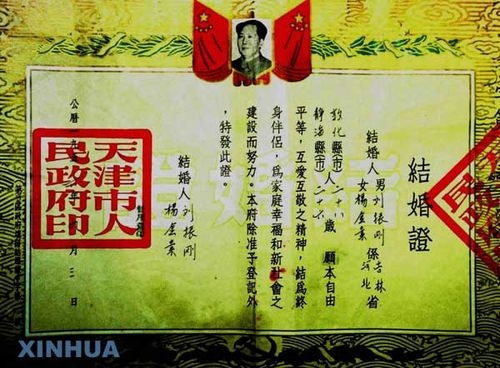 結婚證
結婚人 男 刘振剛 係 吉林 省
女 楊 河北
敦化縣(市)人 二十八 歲 願本自由
靜海縣(市) 二十六
平等，互爱互敬之精神，結爲終
身伴侣，爲家庭幸福和新社會之
建設而努力。本府除准予登記外
，特發此證。
結婚人 刘振剛
楊
天津市人
民政府印
公曆一九 月 日
XINHUA